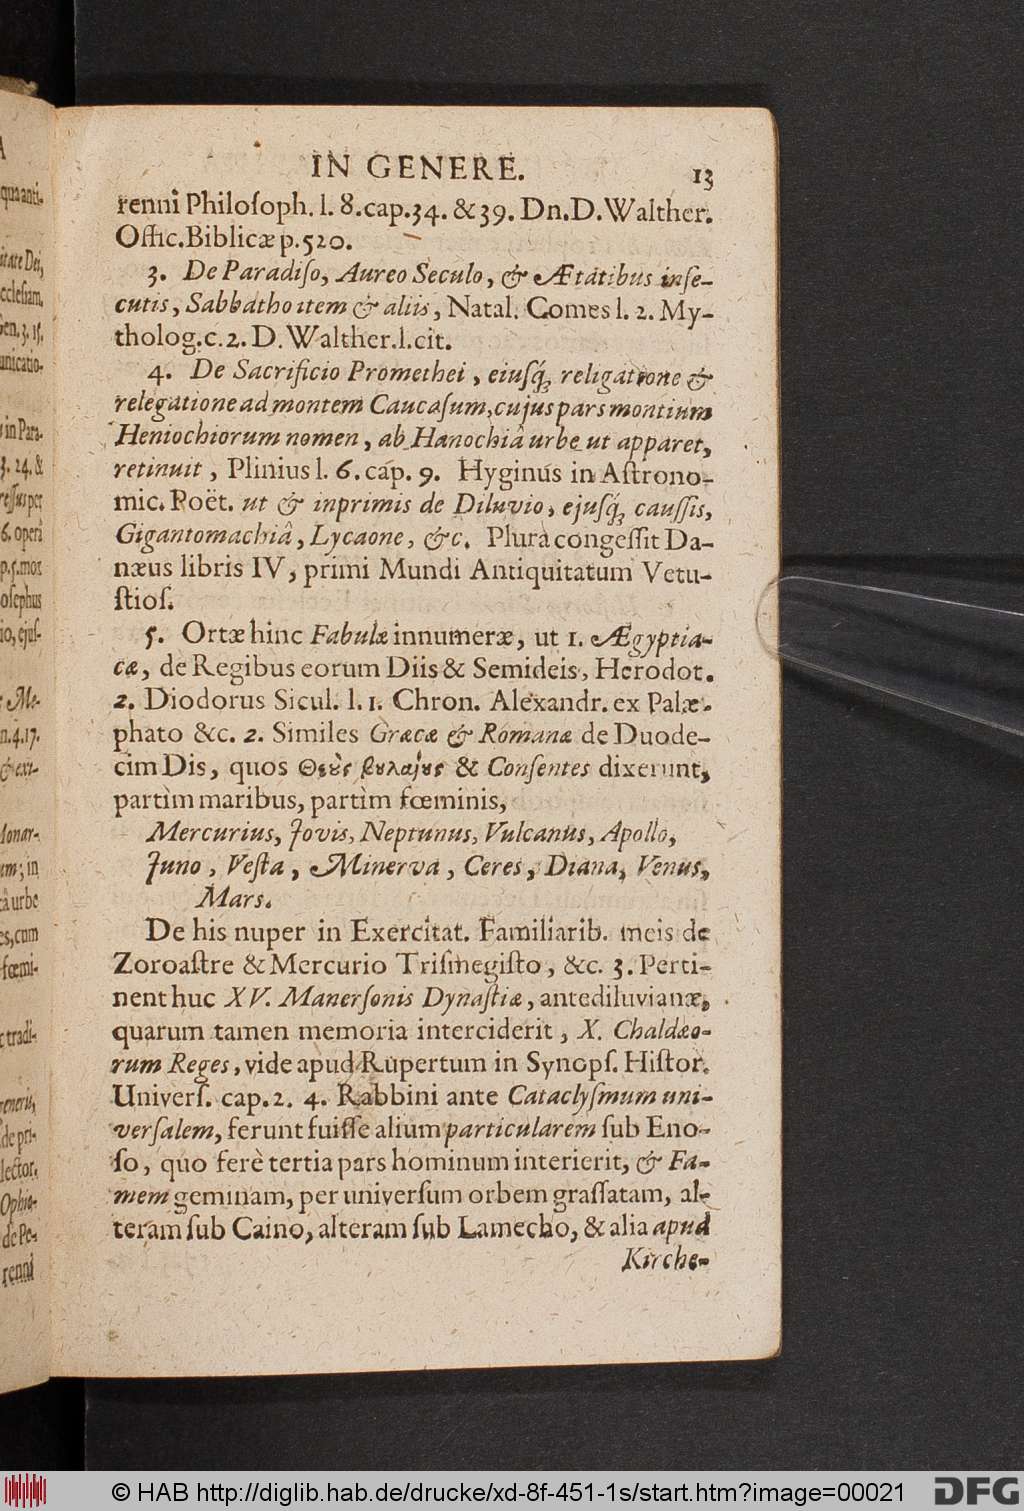 IN GENERE. 13
renni Philoſoph. l. 8. cap. 34. & 39. Dn. D. Walther.
Offic. Biblicæ p. 520.
3. De Paradiſo, Aureo Seculo, & Ætatibus inſe-
cutis, Sabbatho item & aliis, Natal. Comes l. 2. My-
tholog. c. 2. D. Walther. l. cit.
4. De Sacrificio Promethei, eiuſq́; religatione &
relegatione ad montem Caucaſum, cujus pars montium
Heniochiorum nomen, ab Hanochiâ urbe ut apparet,
retinuit, Plinius l. 6. cap. 9. Hyginus in Aſtrono-
mic. Poët. ut & inprimis de Diluvio, ejuſq́; cauſſis,
Gigantomachiâ, Lycaone, &c. Plura congeſſit Da-
næus libris IV, primi Mundi Antiquitatum Vetu-
ſtioſ.
5. Ortæ hinc Fabulæ innumeræ, ut 1. Ægyptia-
cæ, de Regibus eorum Diis & Semideis, Herodot.
2. Diodorus Sicul. l. 1. Chron. Alexandr. ex Palæ-
phato &c. 2. Similes Græcæ & Romanæ de Duode-
cim Dis, quos Θεȣ̀ς βȣλαίȣς & Conſentes dixerunt,
partìm maribus, partìm fœminis,
Mercurius, Jovis, Neptunus, Vulcanus, Apollo,
Juno, Veſta, Minerva, Ceres, Diana, Venus,
Mars.
De his nuper in Exercitat. Familiarib. meis de
Zoroaſtre & Mercurio Triſmegiſto, &c. 3. Perti-
nent huc XV. Manerſonis Dynaſtiæ, antediluvianæ,
quarum tamen memoria interciderit, X. Chaldæo-
rum Reges, vide apud Rupertum in Synopſ. Hiſtor.
Univerſ. cap. 2. 4. Rabbini ante Cataclyſmum uni-
verſalem, ferunt fuiſſe alium particularem ſub Eno-
ſo, quo ferè tertia pars hominum interierit, & Fa-
mem geminam, per univerſum orbem graſſatam, al-
teram ſub Caino, alteram ſub Lamecho, & alia apud
Kirche-
© HAB http://diglib.hab.de/drucke/xd-8f-451-1s/start.htm?image=00021
DFG